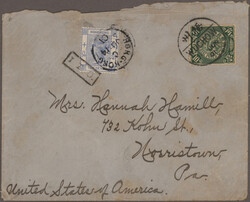 HONG-KONG
Mrs. Hannah Hamill,
432 Kohn St,
Norristown,
Pa.
United States of America.